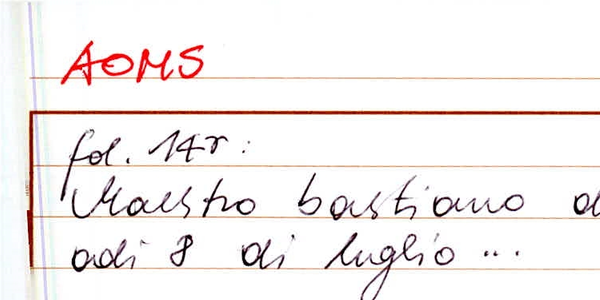 AOMS
fol. 14r:
Maestro bastiano
adi 8 di luglio...